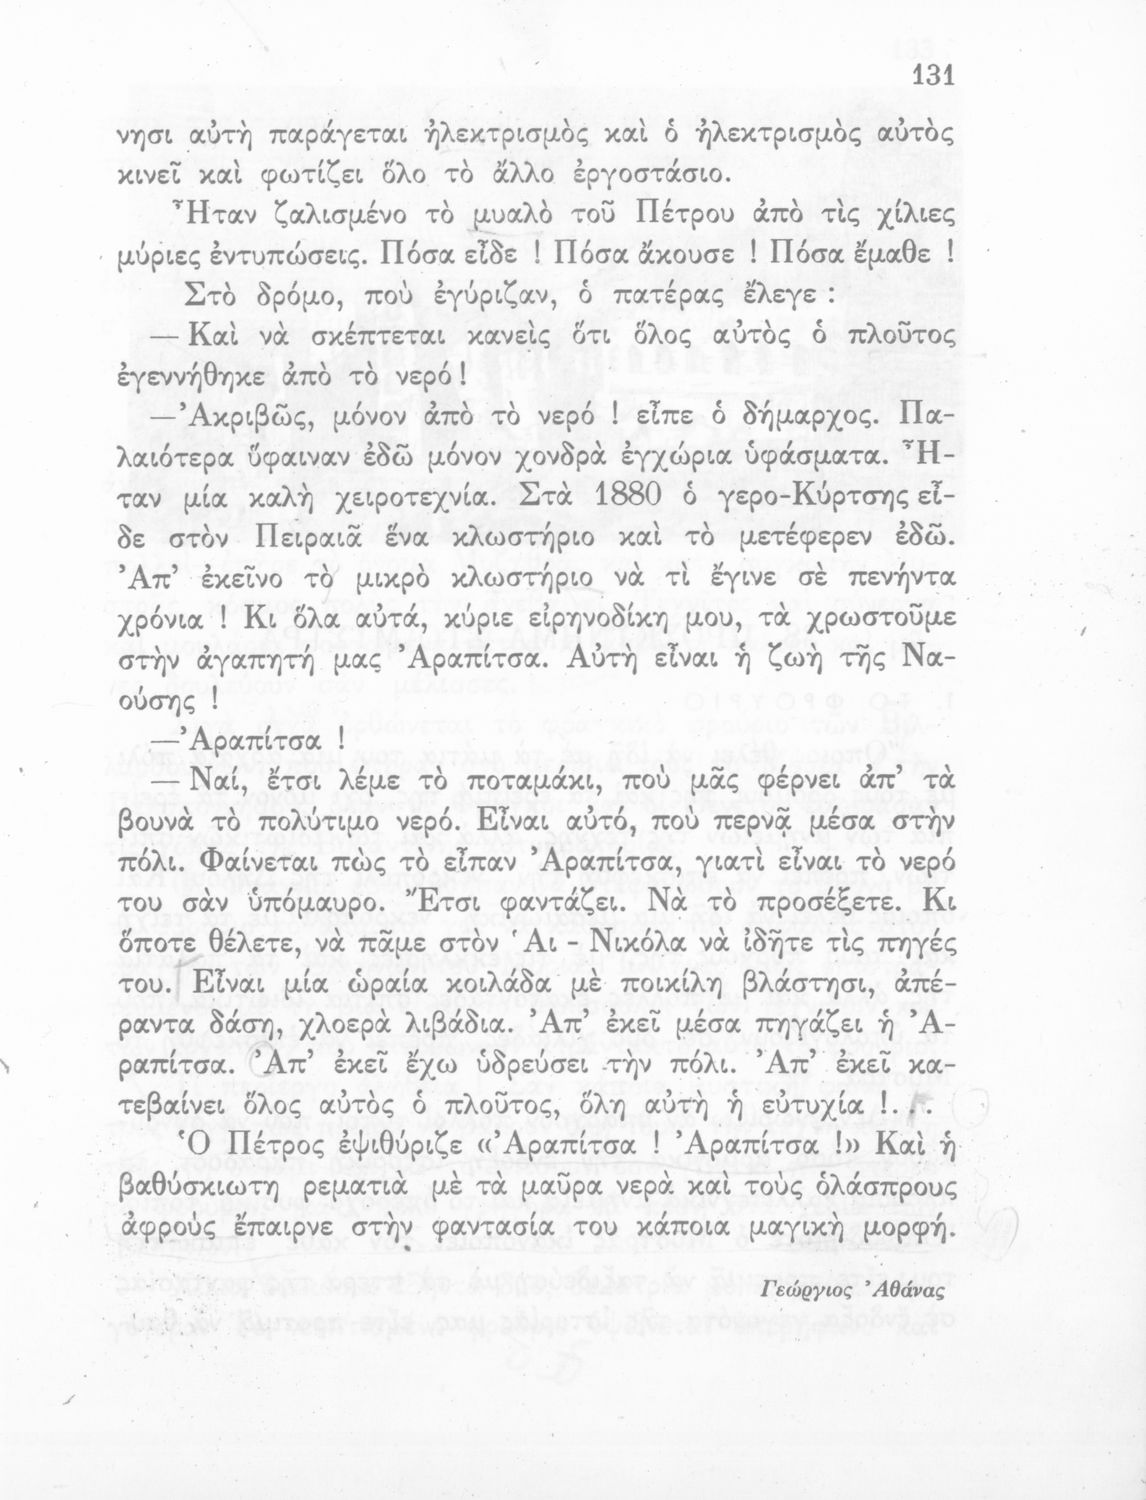 131
νησι αὐτὴ παράγεται ἠλεκτρισμὸς καὶ ὁ ἠλεκτρισμὸς αὐτὸς
κινεῖ καὶ φωτίζει ὅλο τὸ ἄλλο ἐργοστάσιο.
Ἦταν ζαλισμένο τὸ μυαλὸ τοῦ Πέτρου ἀπὸ τὶς χίλιες
μύριες ἐντυπώσεις. Πόσα εἶδε ! Πόσα ἄκουσε ! Πόσα ἔμαθε !
Στὸ δρόμο, ποὺ ἐγύριζαν, ὁ πατέρας ἔλεγε :
— Καὶ νὰ σκέπτεται κανεὶς ὅτι ὅλος αὐτὸς ὁ πλοῦτος
ἐγεννήθηκε ἀπὸ τὸ νερό !
—Ἀκριβῶς, μόνον ἀπὸ τὸ νερό ! εἶπε ὁ δήμαρχος. Πα-
λαιότερα ὕφαιναν ἐδῶ μόνον χονδρὰ ἐγχώρια ὑφάσματα. Ἦ-
ταν μία καλὴ χειροτεχνία. Στὰ 1880 ὁ γερο-Κύρτσης εἶ-
δε στὸν Πειραιᾶ ἕνα κλωστήριο καὶ τὸ μετέφερεν ἐδῶ.
Ἀπ’ ἐκεῖνο τὸ μικρὸ κλωστήριο νὰ τὶ ἔγινε σὲ πενήντα
χρόνια ! Κι ὅλα αὐτά, κύριε εἰρηνοδίκη μου, τὰ χρωστοῦμε
στὴν ἀγαπητή μας Ἀραπίτσα. Αὐτὴ εἶναι ἡ ζωὴ τῆς Να-
ούσης !
—Ἀραπίτσα !
— Ναί, ἔτσι λέμε τὸ ποταμάκι, ποὺ μᾶς φέρνει ἀπ’ τὰ
βουνὰ τὸ πολύτιμο νερό. Εἶναι αὐτό, ποὺ περνᾷ μέσα στὴν
πόλι. Φαίνεται πὼς τὸ εἶπαν Ἀραπίτσα, γιατὶ εἶναι τὸ νερό
του σὰν ὑπόμαυρο. Ἔτσι φαντάζει. Νὰ τὸ προσέξετε. Κι
ὅποτε θέλετε, νὰ πᾶμε στὸν Ἁι - Νικόλα νὰ ἰδῆτε τὶς πηγές
του. Εἶναι μία ὡραία κοιλάδα μὲ ποικίλη βλάστησι, ἀπέ-
ραντα δάση, χλοερὰ λιβάδια. Ἀπ’ ἐκεῖ μέσα πηγάζει ἡ Ἀ-
ραπίτσα. Ἀπ’ ἐκεῖ ἔχω ὑδρεύσει τὴν πόλι. Ἀπ’ ἐκεῖ κα-
τεβαίνει ὅλος αὐτὸς ὁ πλοῦτος, ὅλη αὐτὴ ἡ εὐτυχία !...
Ὁ Πέτρος ἐψιθύριζε «Ἀραπίτσα ! Ἀραπίτσα !» Καὶ ἡ
βαθύσκιωτη ρεματιὰ μὲ τὰ μαῦρα νερὰ καὶ τοὺς ὁλάσπρους
ἀφροὺς ἔπαιρνε στὴν φαντασία του κάποια μαγικὴ μορφή.
Γεώργιος Ἀθάνας